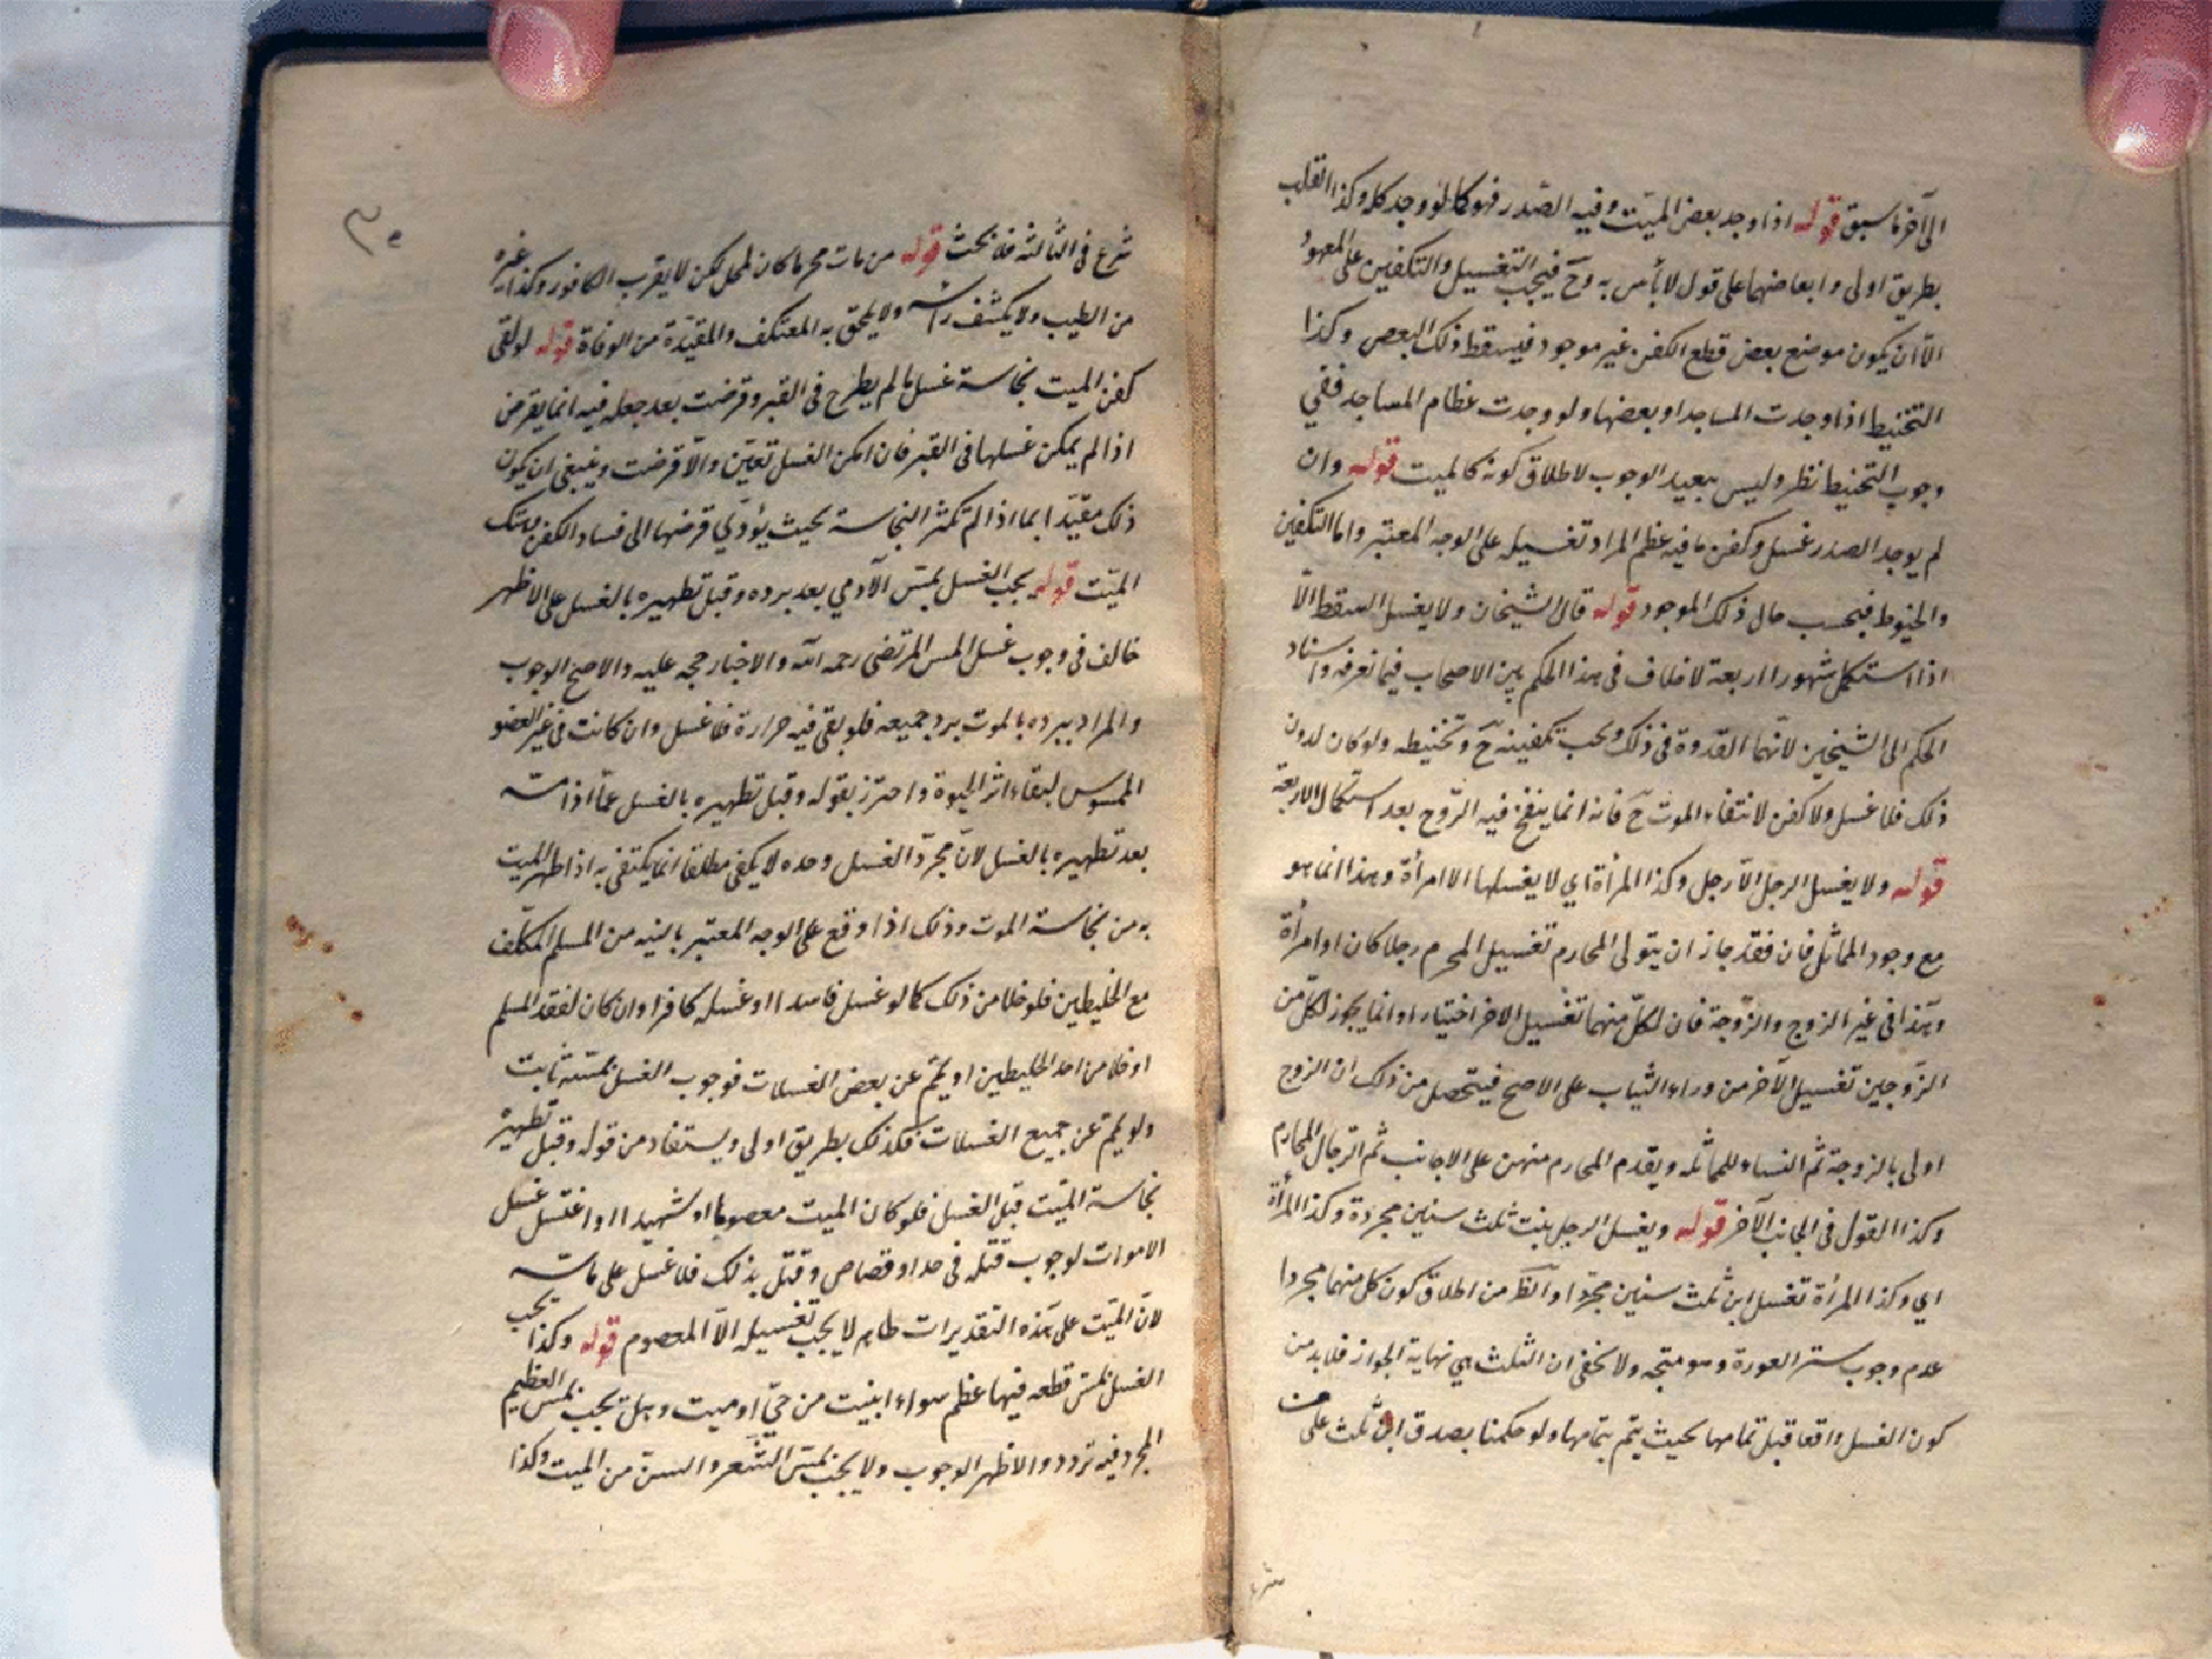 الى آخر ما سبق قوله اذا وجد بعض الميّت وفيه الصّدر فهو كما لو وجد كله وكذا القلب
بطريق اولى وابعاضهما على قول لا بأس به وحَ فيجب التغسيل والتكفين على المعهود
الّا ان يكون موضع بعض قطع الكفن غير موجود فيسقط ذلك البعض وكذا
التحنيط اذا وجدت المساجد او بعضها ولو وجدت عظام المساجد ففي
وجوب التحنيط نظر وليس ببعيد الوجوب لاطلاق كونه كالميت قوله وان
لم يوجد الصدر غسل وكفن ما فيه عظم المراد تغسيله على الوجه المعتبر واما التكفين
والحنوط فبحسب حال ذلك الموجود قوله قال الشيخان ولا يغسل السقط الّا
اذا استكمل شهورا اربعة لا خلاف في هذا الحكم بين الاصحاب فيما نعرفه واسناد
الحكم الى الشيخين لانّهما القدوة في ذلك ويجب تكفينه حَ وتحنيطه ولو كان لدون
ذلك فلا غسل ولا كفن لانتفاء الموت حَ فانه انما ينفخ فيه الرّوح بعد استكمال الاربعة
قوله ولا يغسل الرجل الّا رجل وكذا المرأة اي لا يغسلها الا امرأة وهذا انما هو
مع وجود المماثل فان فقد جاز ان يتولى المحارم تغسيل المحرم رجلا كان او امرأة
وهذا في غير الزوج والزّوجة فان لكلّ منهما تغسيل الاخر اختيارا وانما يجوز لكلّ من
الزّوجين تغسيل الآخر من وراء الثياب على الاصح فيتحصل من ذلك ان الزوج
اولى بالزوجة ثم النساء للمماثلة ويقدم المحارم منهن على الاجانب ثم الرّجال المحارم
وكذا القول في الجانب الآخر قوله ويغسل الرجل بنت ثلث سنين مجردة وكذا المرأة
اي وكذا المرأة تغسل ابن ثلث سنين مجرّدا والظَ من اطلاق كون كل منهما مجردا
عدم وجوب ستر العورة وهو متجه ولا يخفى ان الثلث هي نهاية الجواز فلا بد من
كون الغسل واقعا قبل تمامها بحيث يتم بتمامها ولو حكمنا بصدق ابن ثلث على من
شرع في الثالثة فلا بحث قوله من مات محرما كان كالمحل لكن لا يقرب الكافور وكذا غيره
من الطيب ولا يكشف رأسه ولا يلحق به المعتكف والمعتدّة من الوفاة قوله لو لقى
كفن الميت نجاسة غسل ما لم يطرح في القبر وقرضت بعد جعله فيه انما يقرض
اذا لم يمكن غسلها في القبر فان امكن الغسل تعيّن والّا قرضت وينبغي ان يكون
ذلك مقيّدا بما اذا لم تكثر النجاسة بحيث يؤدّي قرضها الى فساد الكفن وهتك
الميّت قوله يجب الغسل بمسّ الآدمي بعد برده وقبل تطهيره بالغسل على الاظهر
خالف في وجوب غسل المس المرتضى رحمه الله والاخبار حجه عليه والاصح الوجوب
والمراد ببرده بالموت برد جميعه فلو بقى فيه حرارة فلا غسل وان كانت في غير العضو
الممسوس لبقاء اثر الحيوة واحترز بقوله وقبل تطهيره بالغسل عمّا اذا مسّه
بعد تطهيره بالغسل لانّ مجرّد الغسل وحده لا يكفى مطلقا انما يكتفى به اذا طهر الميت
به من نجاسة الموت وذلك اذا وقع على الوجه المعتبر بالنيه من المسلم المكلّف
مع الخليطين فلو خلا من ذلك كما لو غسل فاسدا او غسله كافر وان كان لفقد المسلم
او خلا من احد الخليطين او يمّم عن بعض الغسلات فوجوب الغسل بمسّه ثابت
ولو يمّم عن جميع الغسلات فكذلك بطريق اولى ويستفاد من قوله وقبل تطهيره
نجاسة الميّت قبل الغسل فلو كان الميت معصوما او شهيدا او اغتسل غسل
الاموات لوجوب قتله في حد او قصاص وقتل بذلك فلا غسل على ماسّه
لانّ الميّت على هذه التقديرات طاهر لا يجب تغسيله الّا المعصوم قوله وكذا يجب
الغسل بمسّ قطعه فيها عظم سواء ابينت من حيّ او ميت وهل يجب بمس العظيم
المجرد فيه تردد والاظهر الوجوب ولا يجب بمسّ الشّعر والسنّ من الميت وكذا